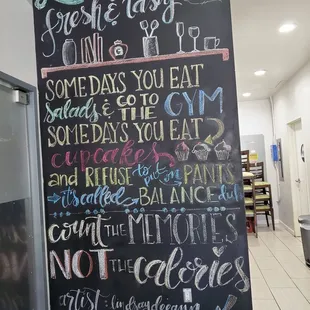 fresh & tasty
SOME DAYS YOU EAT
salads & GO TO THE GYM
SOME DAYS YOU EAT
cupcakes
and REFUSE to put on PANTS
it's called BALANCE
count THE MEMORIES
NOT THE calories
artist: lindsaydeean